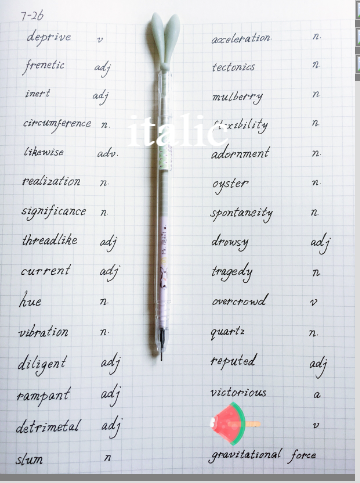 7-26
deprive v
frenetic adj
inert adj
circumference n.
likewise adv.
realization n
significance n
threadlike adj
current adj
hue n
vibration n.
diligent adj
rampant adj
detrimetal adj
slum n
italic
acceleration n.
tectonics n.
mulberry n
flexibility n
adornment n.
oyster n
spontaneity n
drowsy adj
tragedy n
overcrowd v
quartz n.
reputed adj
victorious a
v
gravitational force